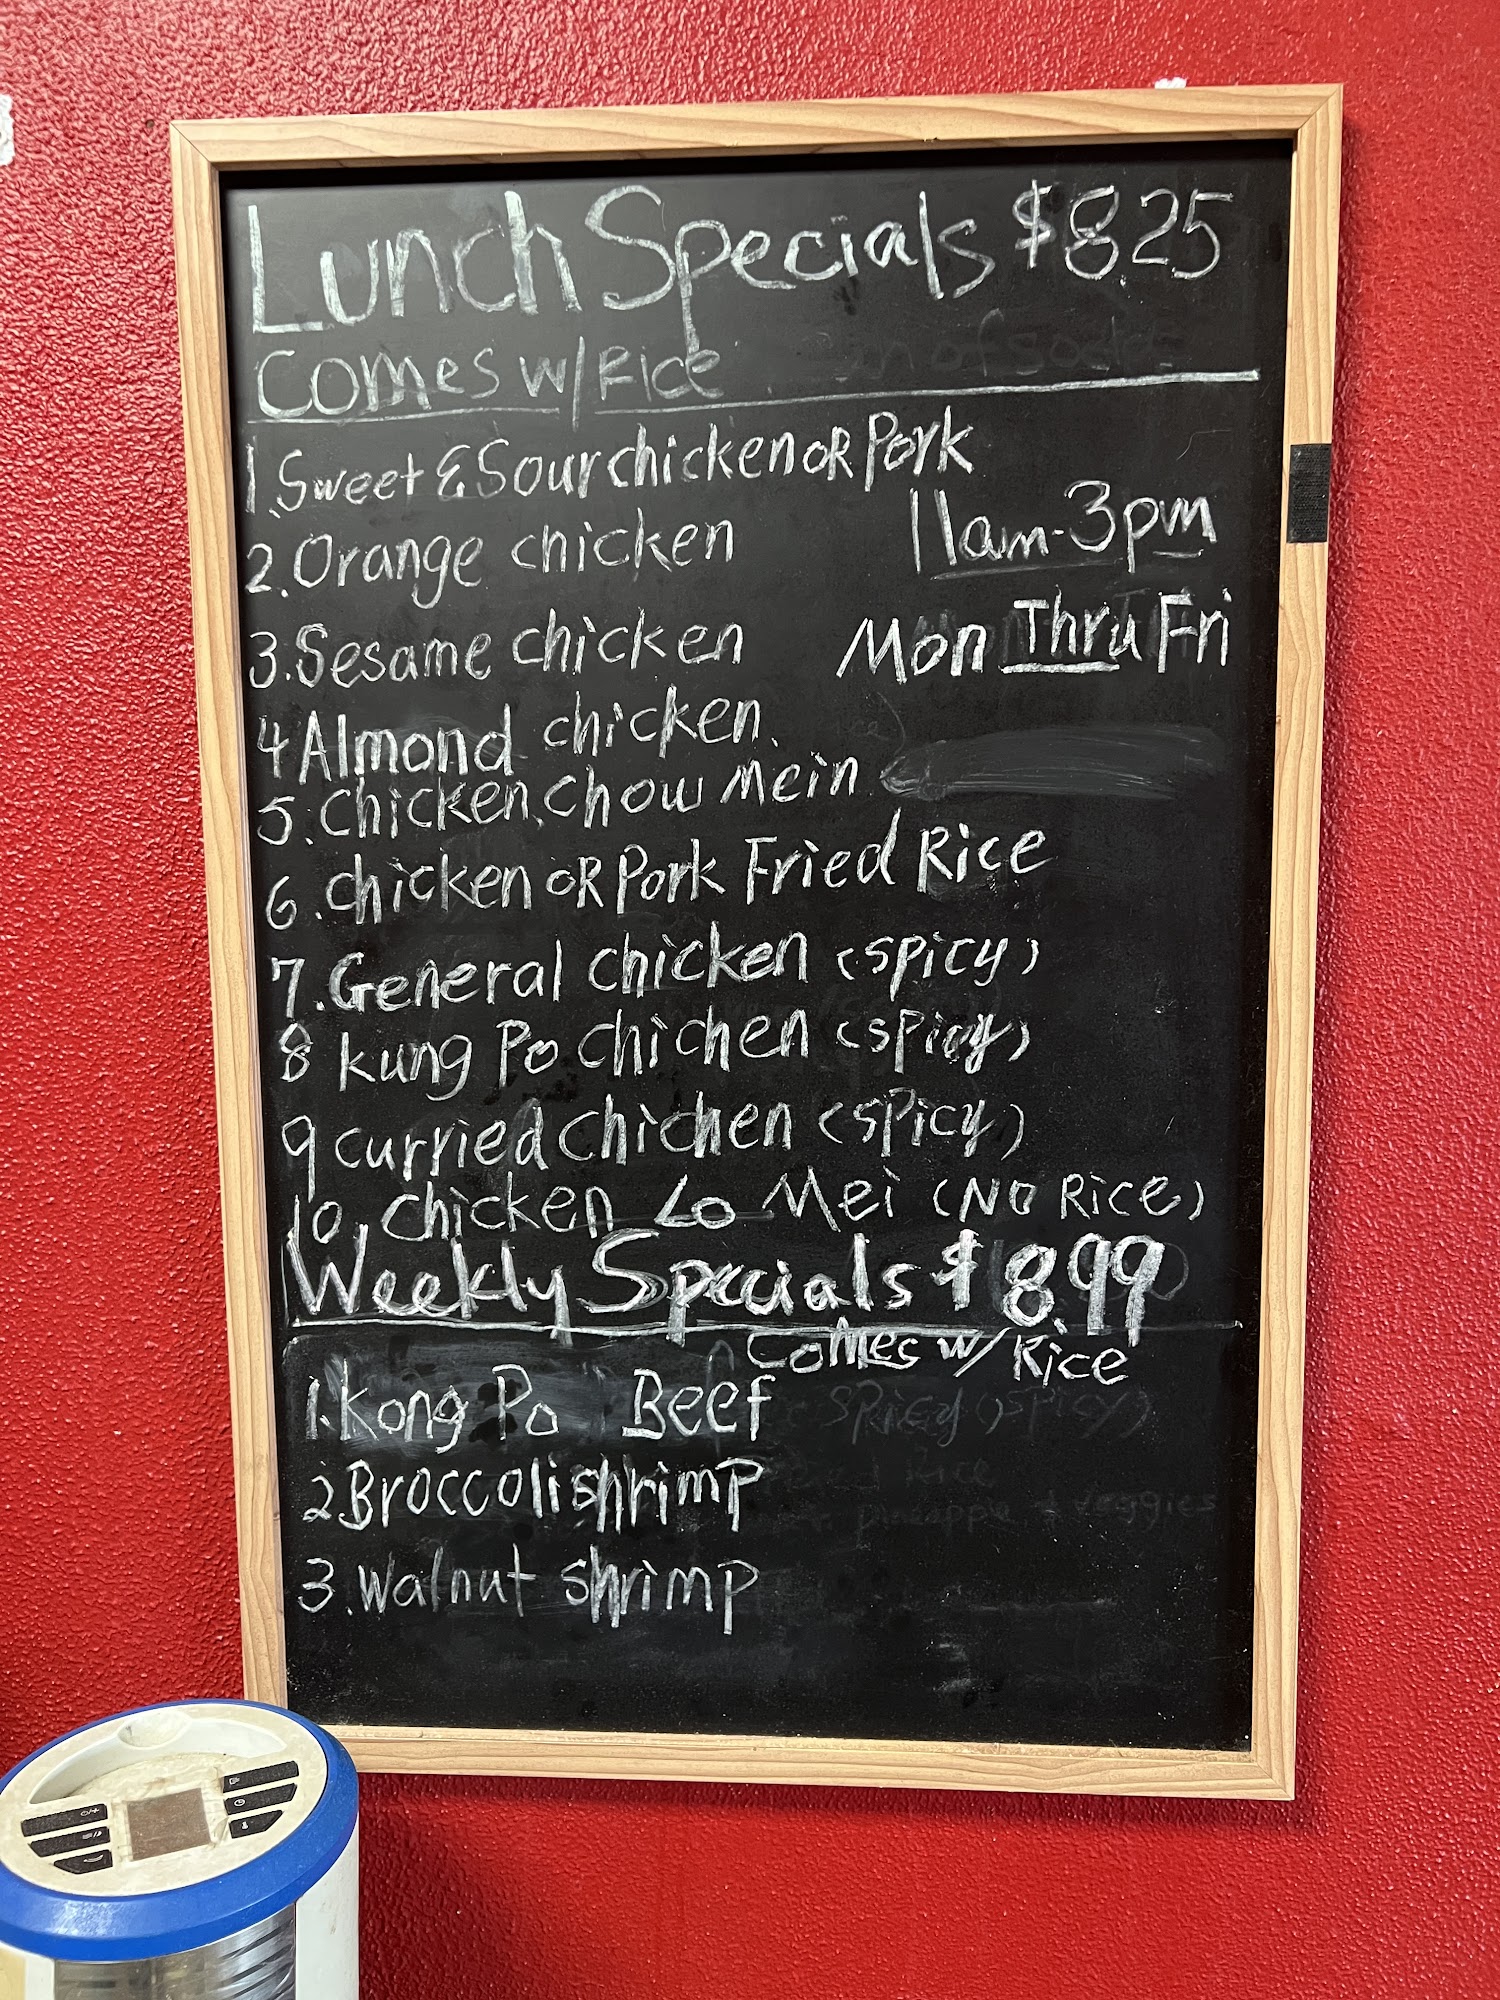 Lunch Specials $8.25
Comes w/ Rice
1. Sweet & Sour chicken OR Pork
2. Orange chicken
11am-3pm
3. Sesame chicken
Mon Thru Fri
4 Almond chicken
5. Chicken Chow Mein
6. chicken OR Pork Fried Rice
7. General chicken (spicy)
8 kung Po chichen (spicy)
9 curried chichen (spicy)
10. chicken Lo Mei (NO Rice)
Weekly Specials $8.99
Comes w/ Rice
1. Kong Po Beef
2 Broccoli shrimp
3. Walnut shrimp